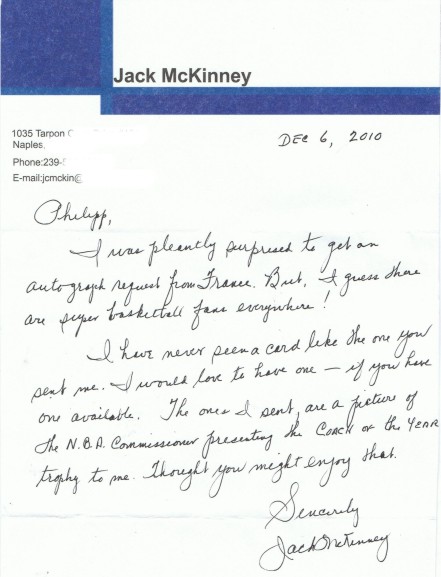 Jack McKinney
1035 Tarpon
Naples,
Phone:239-
E-mail:jcmckin@
DEC 6, 2010
Philipp,
I was pleantly surprised to get an
autograph request from France. But, I guess there
are super basketball fans everywhere!
I have never seen a card like the one you
sent me. I would love to have one – if you have
one available. The ones I sent, are a picture of
the N.B.A. Commissioner presenting the COACH OF the YEAR
trophy to me. Thought you might enjoy that.
Sincerely
Jack McKinney